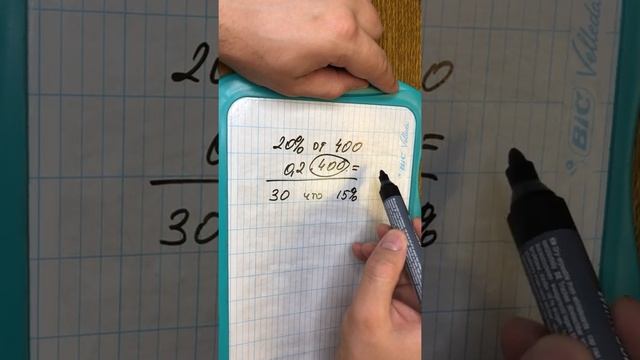 20% от 400
0,2 · 400 =
30 что 15%
BIC Velleda